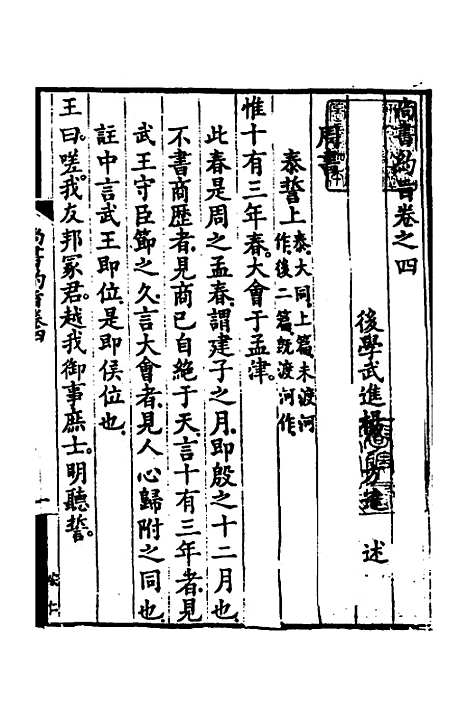 尚書約旨卷之四
後學武進楊方達述
周書
泰誓上泰大同上篇未渡河
作後二篇既渡河作
惟十有三年春大會于孟津
此春是周之孟春謂建子之月即殷之十二月也
不書商歷者見商已自絕于天言十有三年者見
武王守臣節之久言大會者見人心歸附之同也
註中言武王即位是即侯位也
王曰嗟我友邦冢君越我御事庶士明聽誓
尚書約旨卷四
一